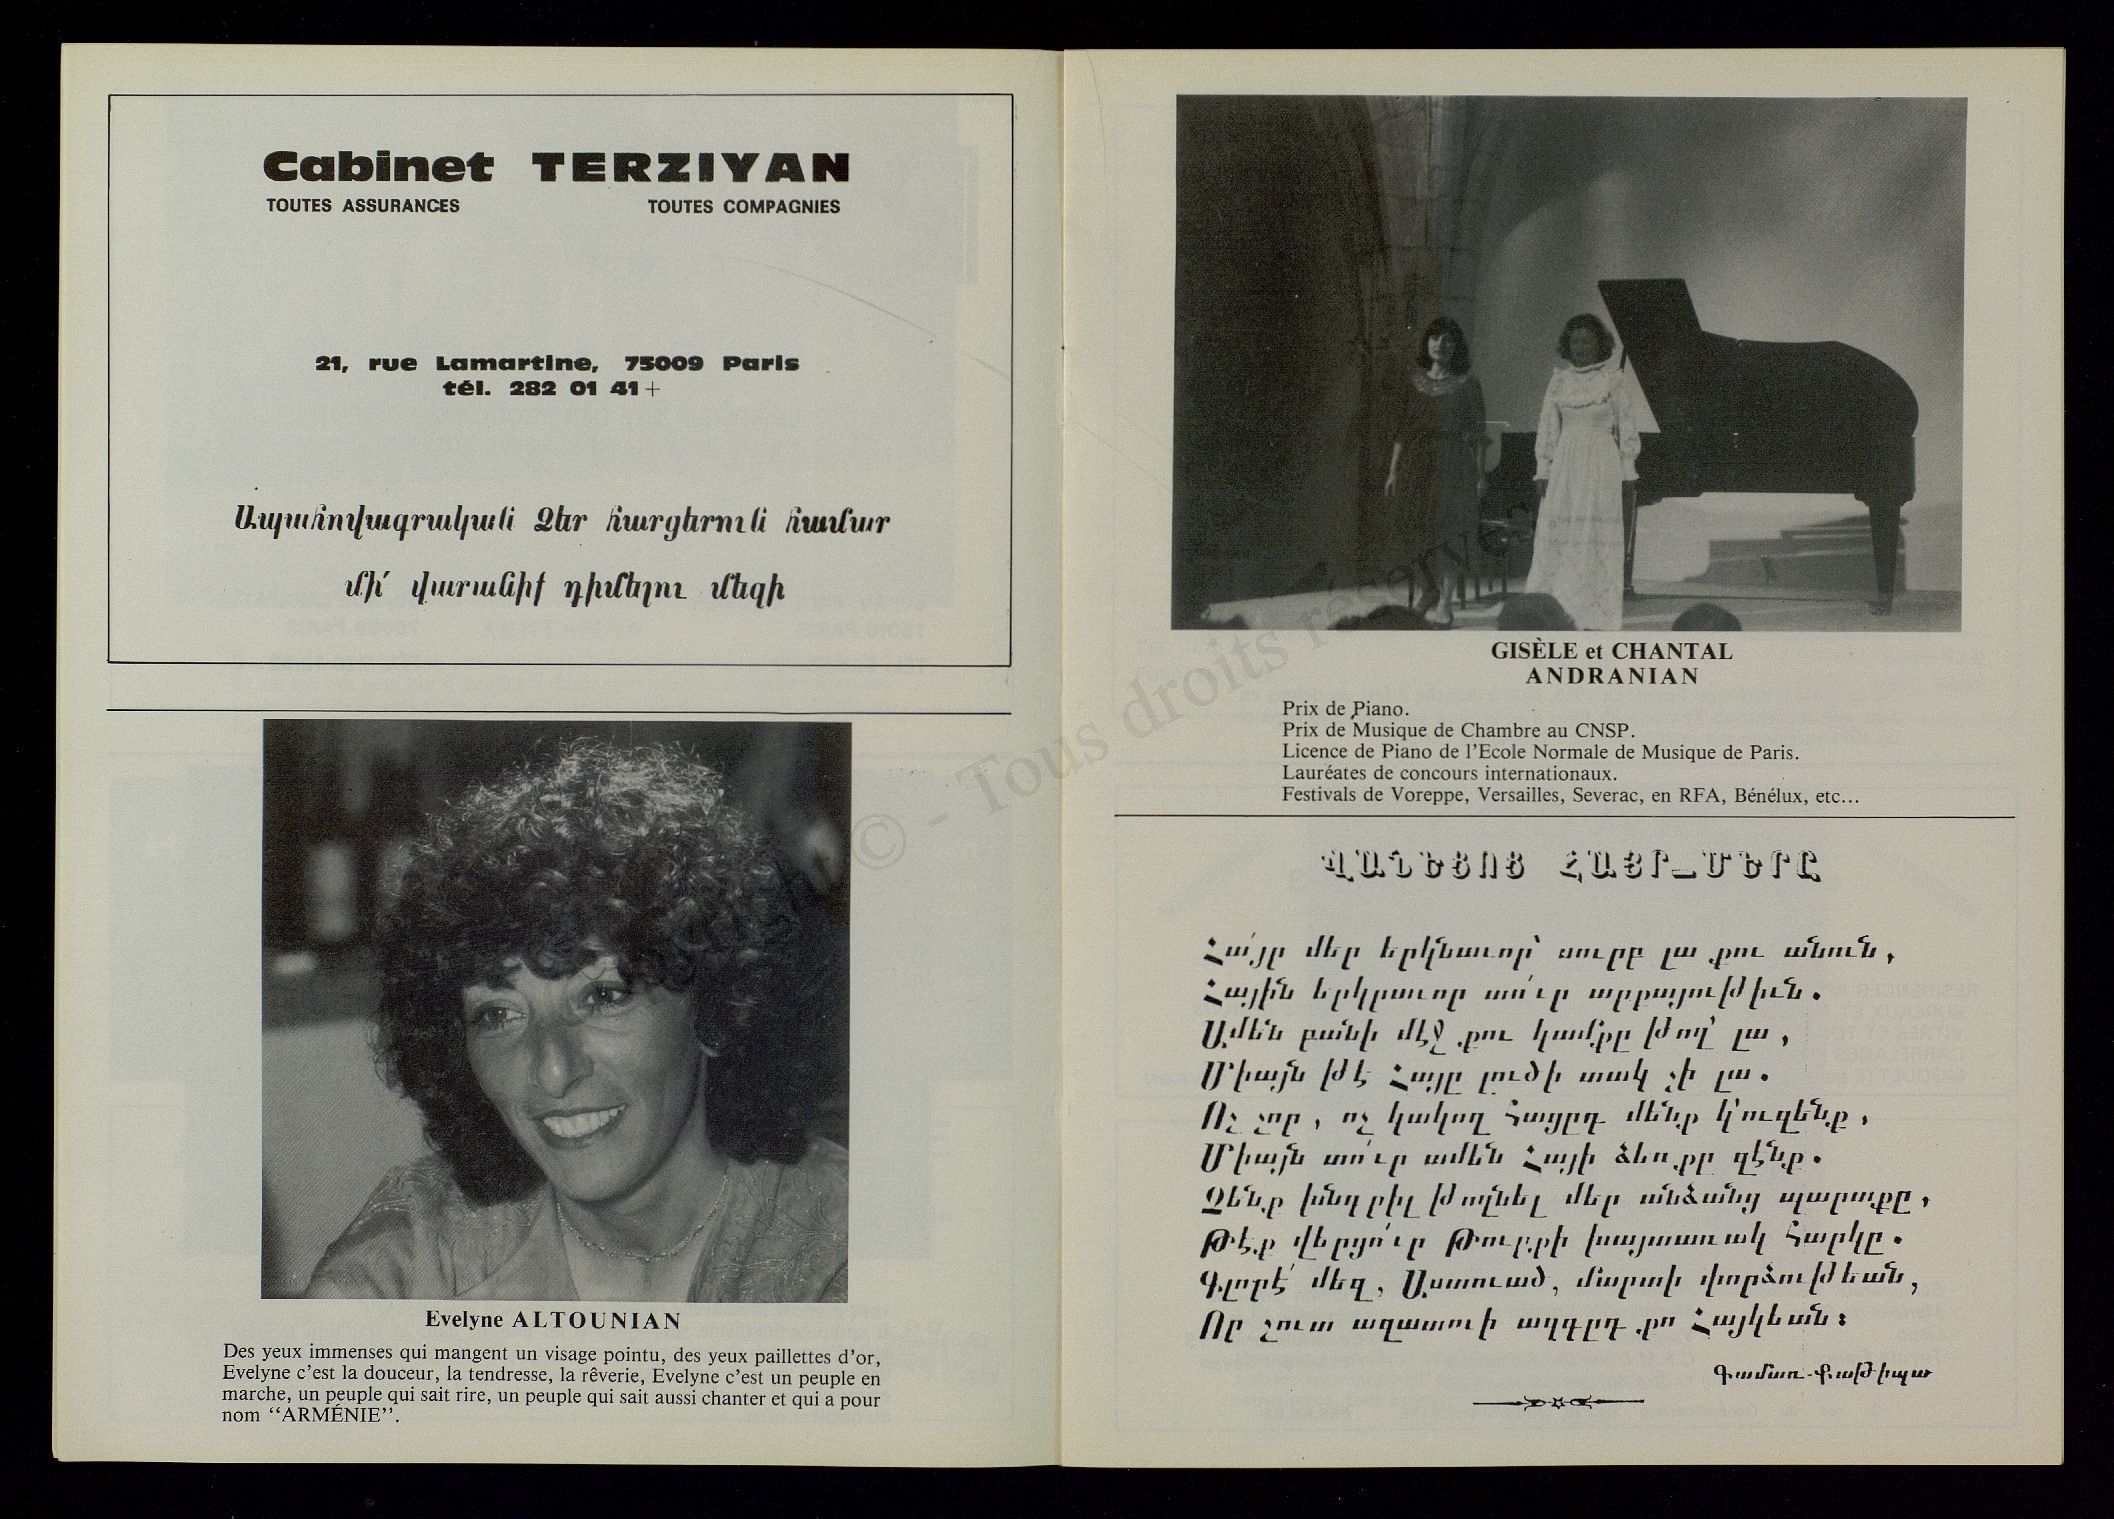 Cabinet TERZIYAN
TOUTES ASSURANCES TOUTES COMPAGNIES
21, rue Lamartine, 75009 Paris
tél. 282 01 41+
Ապահովագրական Ձեր հարցերուն համար
մի՛ վարանիք դիմելու մեզի
Evelyne ALTOUNIAN
Des yeux immenses qui mangent un visage pointu, des yeux paillettes d’or,
Evelyne c’est la douceur, la tendresse, la rêverie, Evelyne c’est un peuple en
marche, un peuple qui sait rire, un peuple qui sait aussi chanter et qui a pour
nom “ARMÉNIE”.
GISÈLE et CHANTAL
ANDRANIAN
Prix de Piano.
Prix de Musique de Chambre au CNSP.
Licence de Piano de l’Ecole Normale de Musique de Paris.
Lauréates de concours internationaux.
Festivals de Voreppe, Versailles, Severac, en RFA, Bénélux, etc...
ՎԱՆԵՑՈՑ ՀԱՅՐ_ՄԵՐԸ
Հա՛յր մեր երկնաւոր՝ սուրբ լա քու անուն,
Հային երկրաւոր տո՛ւր արքայութիւն.
Ամեն բանի մէջ քու կամքը թող՛ լա,
Միայն թէ Հայը լուծի տակ չի լա.
Ոչ չոր, ոչ կակող հացըդ մենք կ՚ուզենք,
Միայն տո՛ւր ամեն Հայի ձեռքը զէնք.
Չենք խնդրիլ թողնել մեր անձանց պարտքը,
Թէք վերցո՛ւր Թուրքի խայտառակ հարկը.
Գլորէ՛ մեզ, Աստուած, մարտի փորձութեան,
Որ շուտ ազատուի ազգըդ քո Հայկեան։
Գամառ-Քաթիպա
© - Tous droits réservés